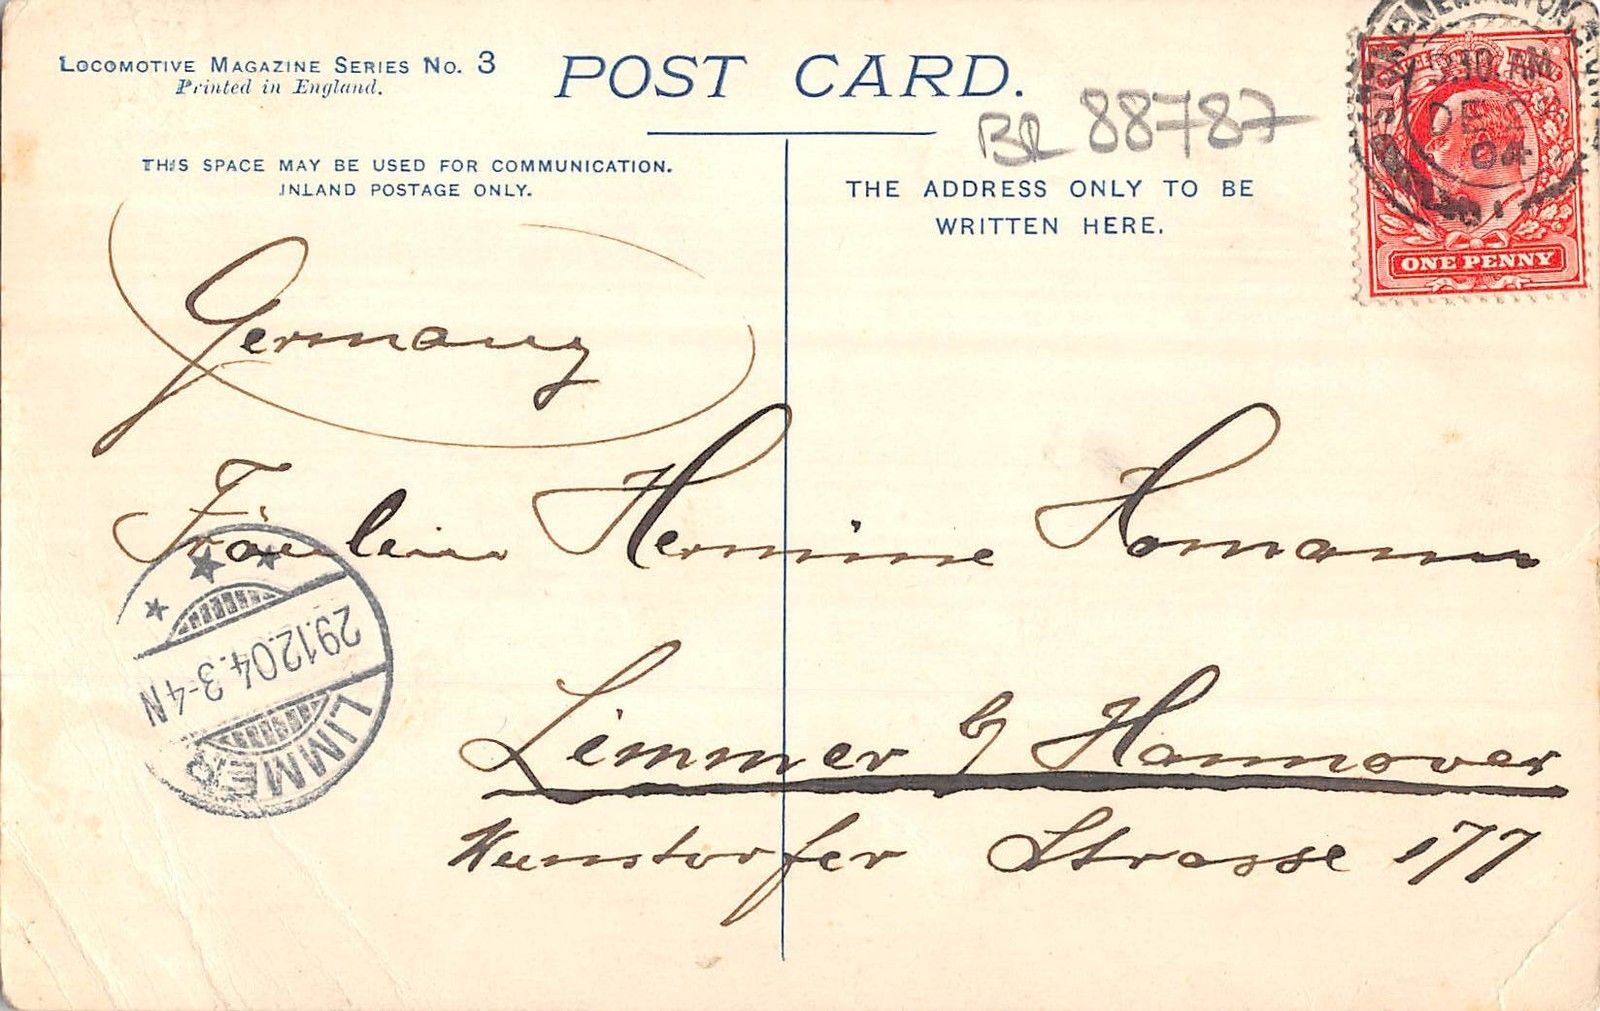 LOCOMOTIVE MAGAZINE SERIES NO. 3
Printed in England.
POST CARD.
BR 88787
THIS SPACE MAY BE USED FOR COMMUNICATION.
INLAND POSTAGE ONLY.
THE ADDRESS ONLY TO BE
WRITTEN HERE.
STOKE NEWINGTON
DE 2
04
ONE PENNY
Germany
Fräulein Hermine Homann
Limmer b/ Hannover
Wunstorfer Strasse 177
LIMMER
29.12.04. 3-4N